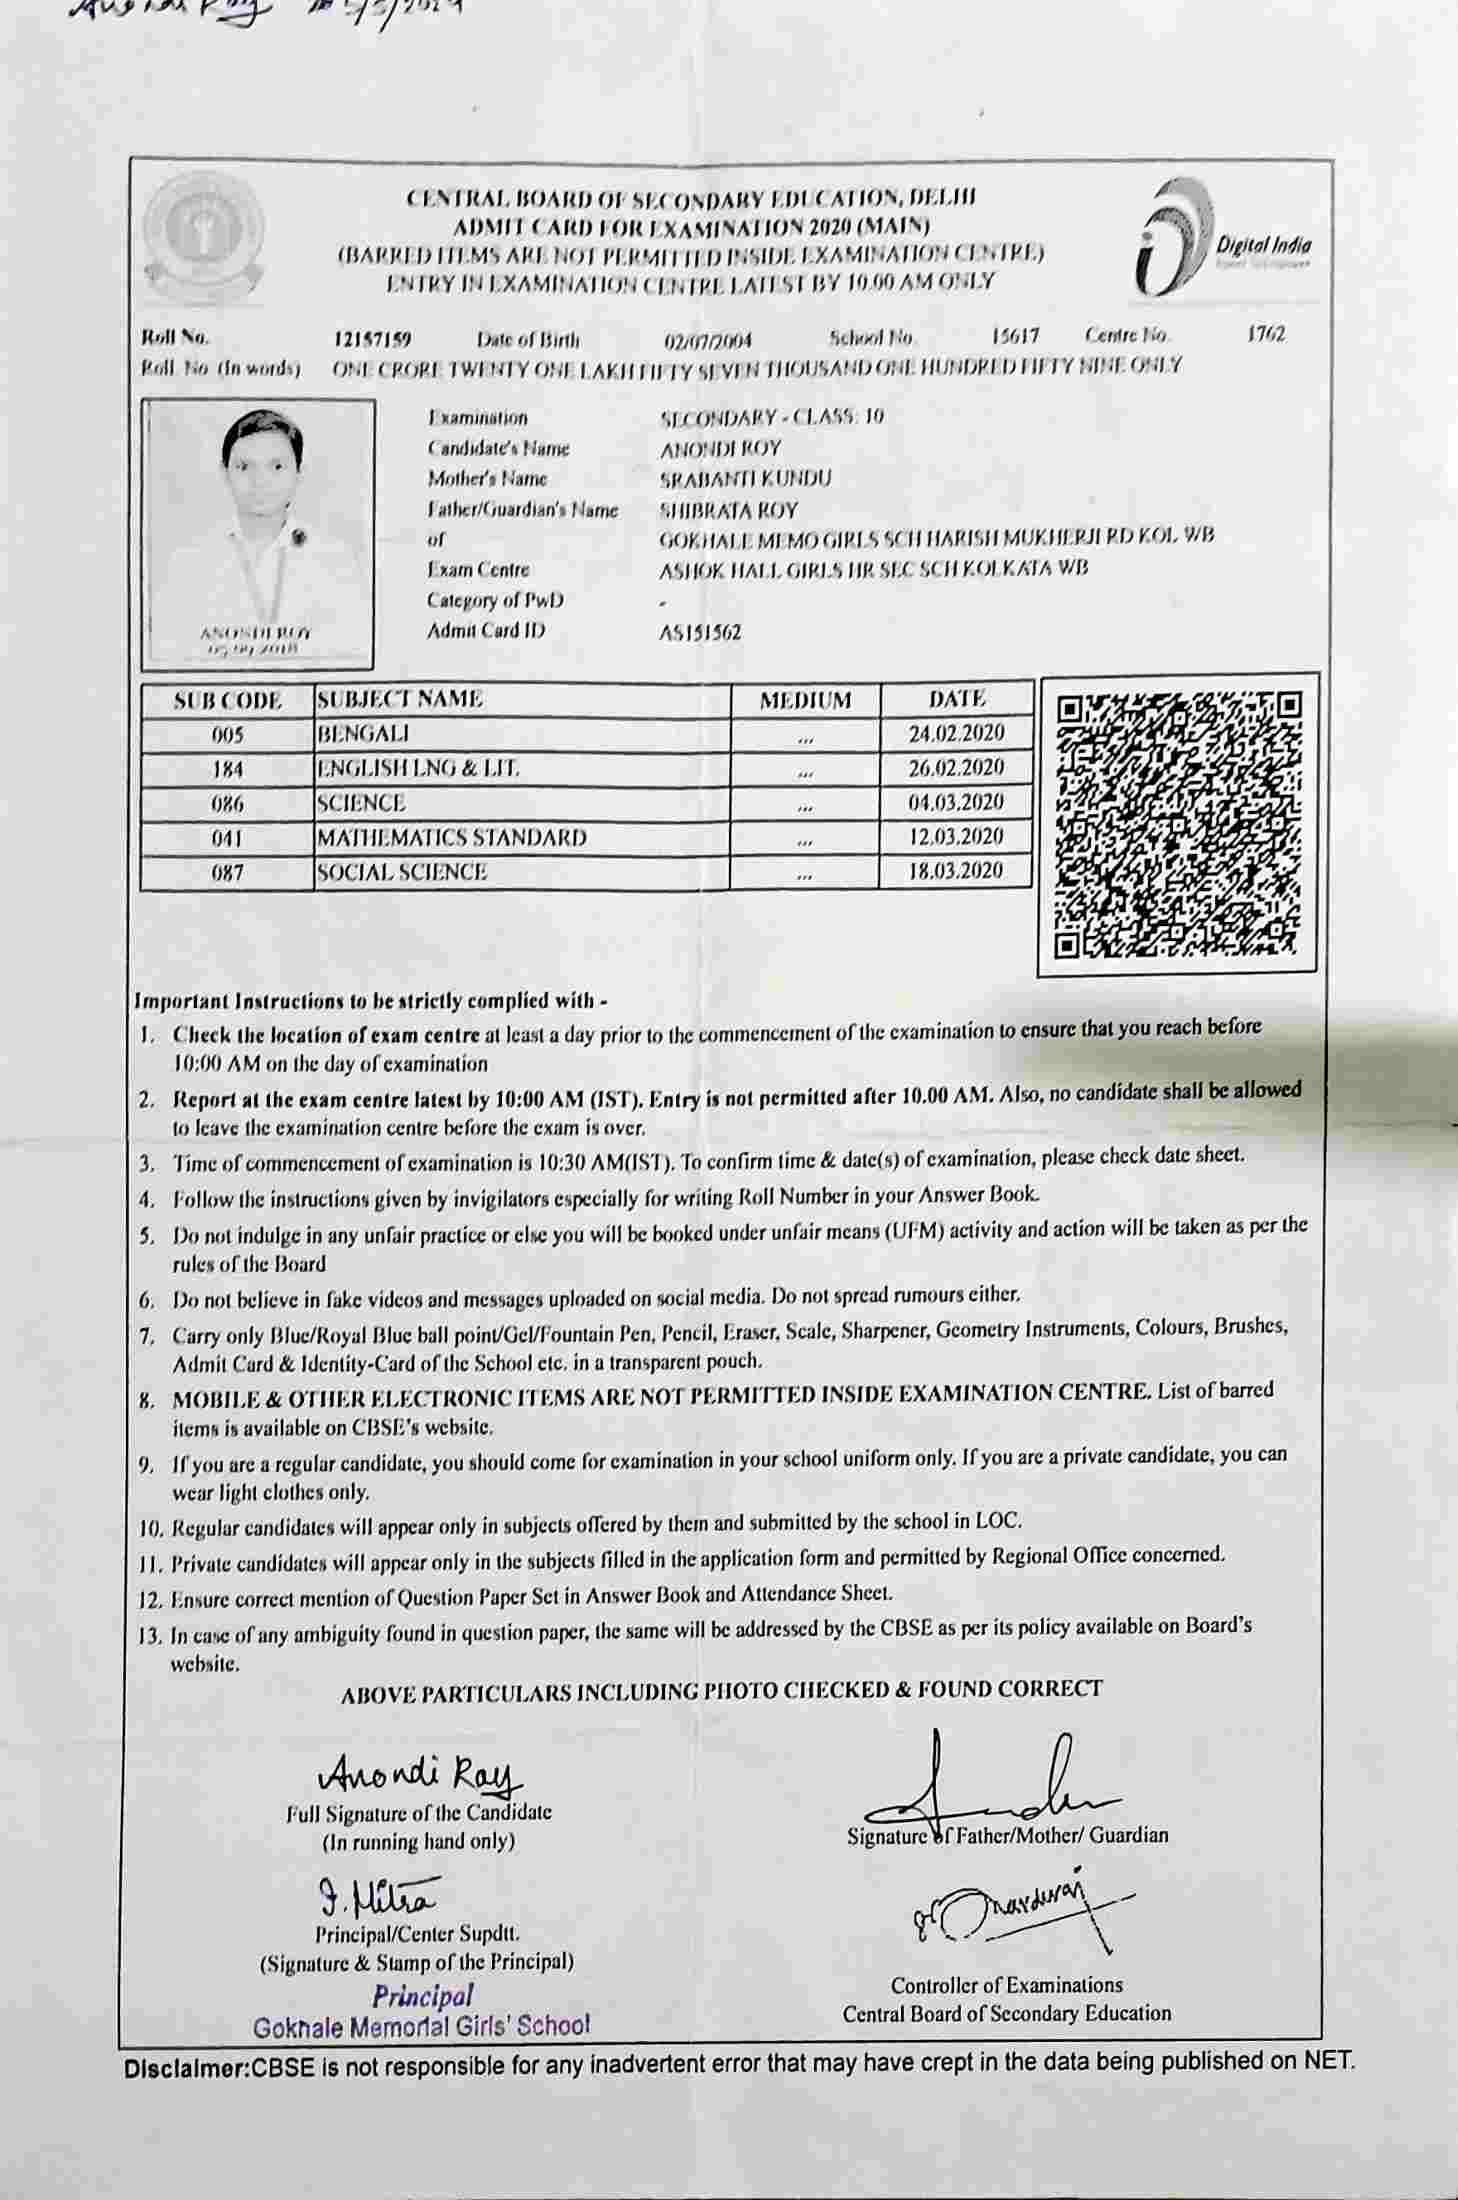 Anondi Roy
CENTRAL BOARD OF SECONDARY EDUCATION, DELHI
ADMIT CARD FOR EXAMINATION 2020 (MAIN)
(BARRED ITEMS ARE NOT PERMITTED INSIDE EXAMINATION CENTRE)
ENTRY IN EXAMINATION CENTRE LATEST BY 10.00 AM ONLY
Digital India
Roll No. 12157159 Date of Birth 02/07/2004 School No. 15617 Centre No. 1762
Roll No (In words) ONE CRORE TWENTY ONE LAKH FIFTY SEVEN THOUSAND ONE HUNDRED FIFTY NINE ONLY
Examination SECONDARY - CLASS: 10
Candidate's Name ANONDI ROY
Mother's Name SRABANTI KUNDU
Father/Guardian's Name SHIBRATA ROY
of GOKHALE MEMO GIRLS SCH HARISH MUKHERJI RD KOL WB
Exam Centre ASHOK HALL GIRLS HR SEC SCH KOLKATA WB
Category of PwD -
Admit Card ID AS151562
ANONDI ROY
05.09.2018
SUB CODE SUBJECT NAME MEDIUM DATE
005 BENGALI ... 24.02.2020
184 ENGLISH LNG & LIT. ... 26.02.2020
086 SCIENCE ... 04.03.2020
041 MATHEMATICS STANDARD ... 12.03.2020
087 SOCIAL SCIENCE ... 18.03.2020
Important Instructions to be strictly complied with -
1. Check the location of exam centre at least a day prior to the commencement of the examination to ensure that you reach before
10:00 AM on the day of examination
2. Report at the exam centre latest by 10:00 AM (IST). Entry is not permitted after 10.00 AM. Also, no candidate shall be allowed
to leave the examination centre before the exam is over.
3. Time of commencement of examination is 10:30 AM(IST). To confirm time & date(s) of examination, please check date sheet.
4. Follow the instructions given by invigilators especially for writing Roll Number in your Answer Book.
5. Do not indulge in any unfair practice or else you will be booked under unfair means (UFM) activity and action will be taken as per the
rules of the Board
6. Do not believe in fake videos and messages uploaded on social media. Do not spread rumours either.
7. Carry only Blue/Royal Blue ball point/Gel/Fountain Pen, Pencil, Eraser, Scale, Sharpener, Geometry Instruments, Colours, Brushes,
Admit Card & Identity-Card of the School etc. in a transparent pouch.
8. MOBILE & OTHER ELECTRONIC ITEMS ARE NOT PERMITTED INSIDE EXAMINATION CENTRE. List of barred
items is available on CBSE's website.
9. If you are a regular candidate, you should come for examination in your school uniform only. If you are a private candidate, you can
wear light clothes only.
10. Regular candidates will appear only in subjects offered by them and submitted by the school in LOC.
11. Private candidates will appear only in the subjects filled in the application form and permitted by Regional Office concerned.
12. Ensure correct mention of Question Paper Set in Answer Book and Attendance Sheet.
13. In case of any ambiguity found in question paper, the same will be addressed by the CBSE as per its policy available on Board's
website.
ABOVE PARTICULARS INCLUDING PHOTO CHECKED & FOUND CORRECT
Anondi Roy
Full Signature of the Candidate
(In running hand only)
Signature of Father/Mother/ Guardian
I. Mitra
Principal/Center Supdtt.
(Signature & Stamp of the Principal)
Principal
Gokhale Memorial Girls' School
Controller of Examinations
Central Board of Secondary Education
Disclaimer:CBSE is not responsible for any inadvertent error that may have crept in the data being published on NET.